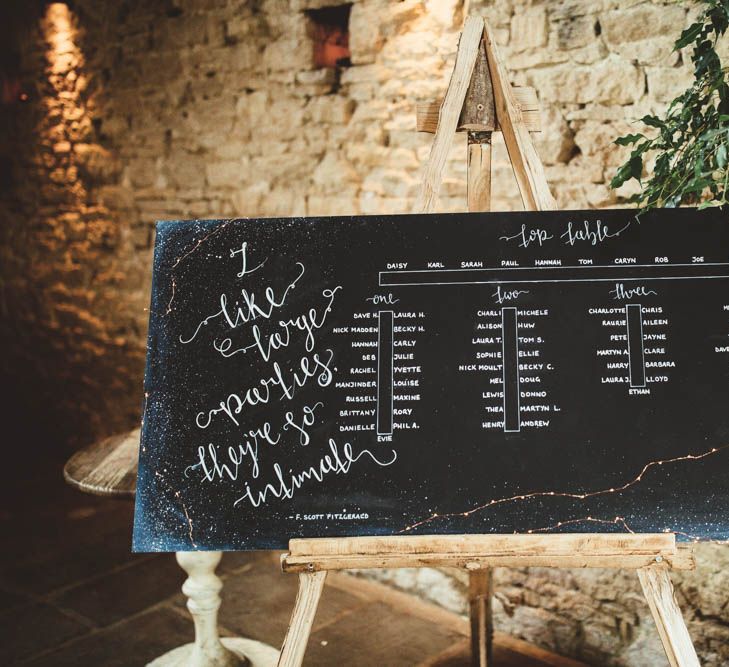 I
like
large
parties.
they're so
intimate
- F. SCOTT FITZGERALD
top table
DAISY KARL SARAH PAUL HANNAH TOM CARYN ROB JOE
one
DAVE H. LAURA H.
NICK MADDEN BECKY H.
HANNAH CARLY
DEB JULIE
RACHEL YVETTE
MANJINDER LOUISE
RUSSELL MAXINE
BRITTANY RORY
DANIELLE PHIL A.
EVIE
two
CHARLI MICHELE
ALISON HUW
LAURA T. TOM S.
SOPHIE ELLIE
NICK MOULT BECKY C.
MEL DOUG
LEWIS DONNO
THEA MARTYN L.
HENRY ANDREW
three
CHARLOTTE CHRIS
LAURIE AILEEN
PETE JAYNE
MARTYN A. CLARE
HARRY BARBARA
LAURA J. LLOYD
ETHAN